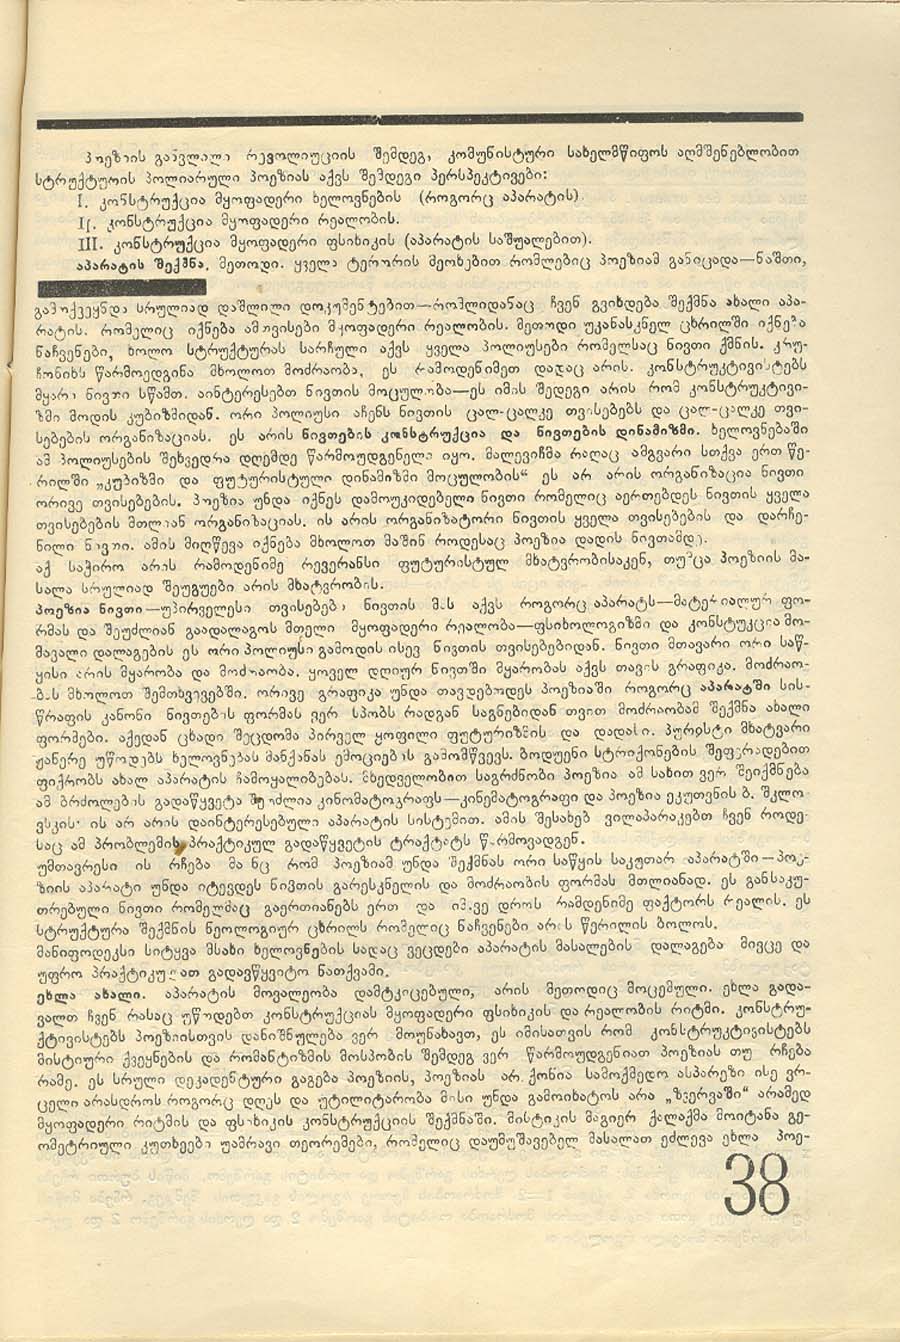 პოეზიის გავლილი რევოლიუციის შემდეგ, კომუნისტური სახელმწიფოს აღმშენებლობით
სტრუქტურის პოლიარული პოეზიას აქვს შემდეგი პერსპექტივები:
I. კონსტრუქცია მყოფადერი ხელოვნების (როგორც აპარატის).
II. კონსტრუქცია მყოფადერი რეალობის.
III. კონსტრუქცია მყოფადერი ფსიხიკის (აპარატის საშუალებით).
აპარატის შექმნა. მეთოდი. ყველა ტერორის მეოხებით რომლებიც პოეზიამ განიცადა—ნაშთი,
გამოქვეყნდა სრულიად დაშლილი დოკუმენტებით—რომლიდანაც ჩვენ გვიხდება შექმნა ახალი აპა-
რატის. რომელიც იქნება ამთვისები მყოფადერი რეალობის. მეთოდი უკანასკნელ ცხრილში იქნება
ნაჩვენები, ხოლო სტრუქტურას სარჩული აქვს ყველა პოლიუსები რომელსაც ნივთი ქმნის. კრუ-
ჩონიხს წარმოედგინა მხოლოთ მოძრაობა, ეს რამოდენიმეთ დადაც არის. კონსტრუქტივისტებს
მყარი ნივთი სწამთ. აინტერესებთ ნივთის მოცულობა—ეს იმის შედეგი არის რომ კონსტრუქტივი-
ზმი მოდის კუბიზმიდან. ორი პოლიუსი აჩენს ნივთის ცალ-ცალკე თვისებებს და ცალ-ცალკე თვი-
სებების ორგანიზაციას. ეს არის ნივთების კონსტრუქცია და ნივთების დინამიზმი. ხელოვნებაში
ამ პოლიუსების შეხვედრა დღემდე წარმოუდგენელი იყო. მალევიჩმა რაღაც ამგვარი სთქვა ერთ წე-
რილში „კუბიზმი და ფუტურისტული დინამიზმი მოცულობის“ ეს არ არის ორგანიზაცია ნივთი
ორივე თვისებების. პოეზია უნდა იქნეს დამოუკიდებელი ნივთი რომელიც აერთებდეს ნივთის ყველა
თვისებების მთლიან ორგანიზაციას. ის არის ორგანიზატორი ნივთის ყველა თვისებების და დარჩე-
ნილი ნივთი. ამის მიღწევა იქნება მხოლოთ მაშინ როდესაც პოეზია დადის ნივთამდე.
აქ საჭირო არის რამოდენიმე რევერანსი ფუტურისტულ მხატვრობისაკენ, თუმცა პოეზიის მა-
სალა სრულიად შეუგუები არის მხატვრობის.
პოეზია ნივთი—უპირველესი თვისებები ნივთის მას აქვს როგორც აპარატს—მატერიალურ ფო-
რმას და შეუძლიან გაადალაგოს მთელი მყოფადერი რეალობა—ფსიხოლოგიზმი და კონსტუკცია მო-
მავალი დალაგების ეს ორი პოლიუსი გამოდის ისევ ნივთის თვისებებიდან. ნივთი მთავარი ორი საწ-
ყისი არის მყარობა და მოძრაობა. ყოველ დღიურ ნივთში მყარობას აქვს თავის გრაფიკა. მოძრაო-
ბას მხოლოთ შემთხვევებში. ორივე გრაფიკა უნდა თავდებოდეს პოეზიაში როგორც აპარატში სის-
წრაფის კანონი ნივთების ფორმას ვერ სპობს რადგან საგნებიდან თვით მოძრაობამ შექმნა ახალი
ფორმები. აქედან ცხადი შეცდომა პირველ ყოფილი ფუტურიზმის და დადასი. პურისტი მხატვარი
ჟანერე უწოდებს ხელოვნებას მანქანას ემოციების გამომწვევს. ბოდუენი სტრიქონების შეფერადებით
ფიქრობს ახალ აპარატის ჩამოყალიბებას. მხედველობით საგრძნობი პოეზია ამ სახით ვერ შეიქმნება
ამ ბრძოლების გადაწყვეტა შეუძლია კინომატოგრაფს—კინემატოგრაფი და პოეზია ეკუთვნის ბ. შკლო-
ვსკის· ის არ არის დაინტერესებული აპარატის სისტემით. ამის შესახებ ვილაპარაკებთ ჩვენ როდე
საც ამ პრობლემის პრაქტიკულ გადაწყვეტის ტრაქტატს წარმოვადგენ.
უმთავრესი ის რჩება მაინც რომ პოეზიამ უნდა შექმნას ორი საწყის საკუთარ აპარატში—პოე-
ზიის აპარატი უნდა იტევდეს ნივთის გარესკნელის და მოძრაობის ფორმას მთლიანად. ეს განსაკუ-
თრებული ნივთი რომელმაც გაერთიანებს ერთ და იმავე დროს რამდენიმე ფაქტორს რეალის. ეს
სტრუქტურა შექმნის ნეოლოგიურ ცხრილს რომელიც ნაჩვენები არის წერილის ბოლოს.
მანიფოდეკსი სიტყვა მსახი ხელოვნების სადაც ვეცდები აპარატის მასალების დალაგება მივცე და
უფრო პრაქტიკულათ გადავწყვიტო ნათქვამი.
ეხლა ახალი. აპარატის მოვალეობა დამტკიცებული, არის მეთოდიც მოცემული. ეხლა გადა-
ვალთ ჩვენ რასაც უწოდებთ კონსტრუქციას მყოფადერი ფსიხიკის და რეალობის რიტმი. კონსტრუ-
ქტივისტებს პოეზიისთვის დანიშნულება ვერ მოუნახავთ, ეს იმისათვის რომ კონსტრუქტივისტებს
მისტიური ქვეყნების და რომანტიზმის მოსპობის შემდეგ ვერ წარმოუდგენიათ პოეზიას თუ რჩება
რამე. ეს სრული დეკადენტური გაგება პოეზიის, პოეზიას არ ქონია სამოქმედო ასპარეზი ისე ვრ-
ცელი არასდროს როგორც დღეს და უტილიტარობა მისი უნდა გამოიხატოს არა „ზჯერვაში“ არამედ
მყოფადერი რიტმის და ფსიხიკის კონსტრუქციის შექმნაში. მისტიკის მაგიერ ქალაქმა მოიტანა გე-
ომეტრიული კუთხეები უამრავი თეორემები, რომელიც დაუმუშავებელ მასალათ ეძლევა ეხლა პოე-
38